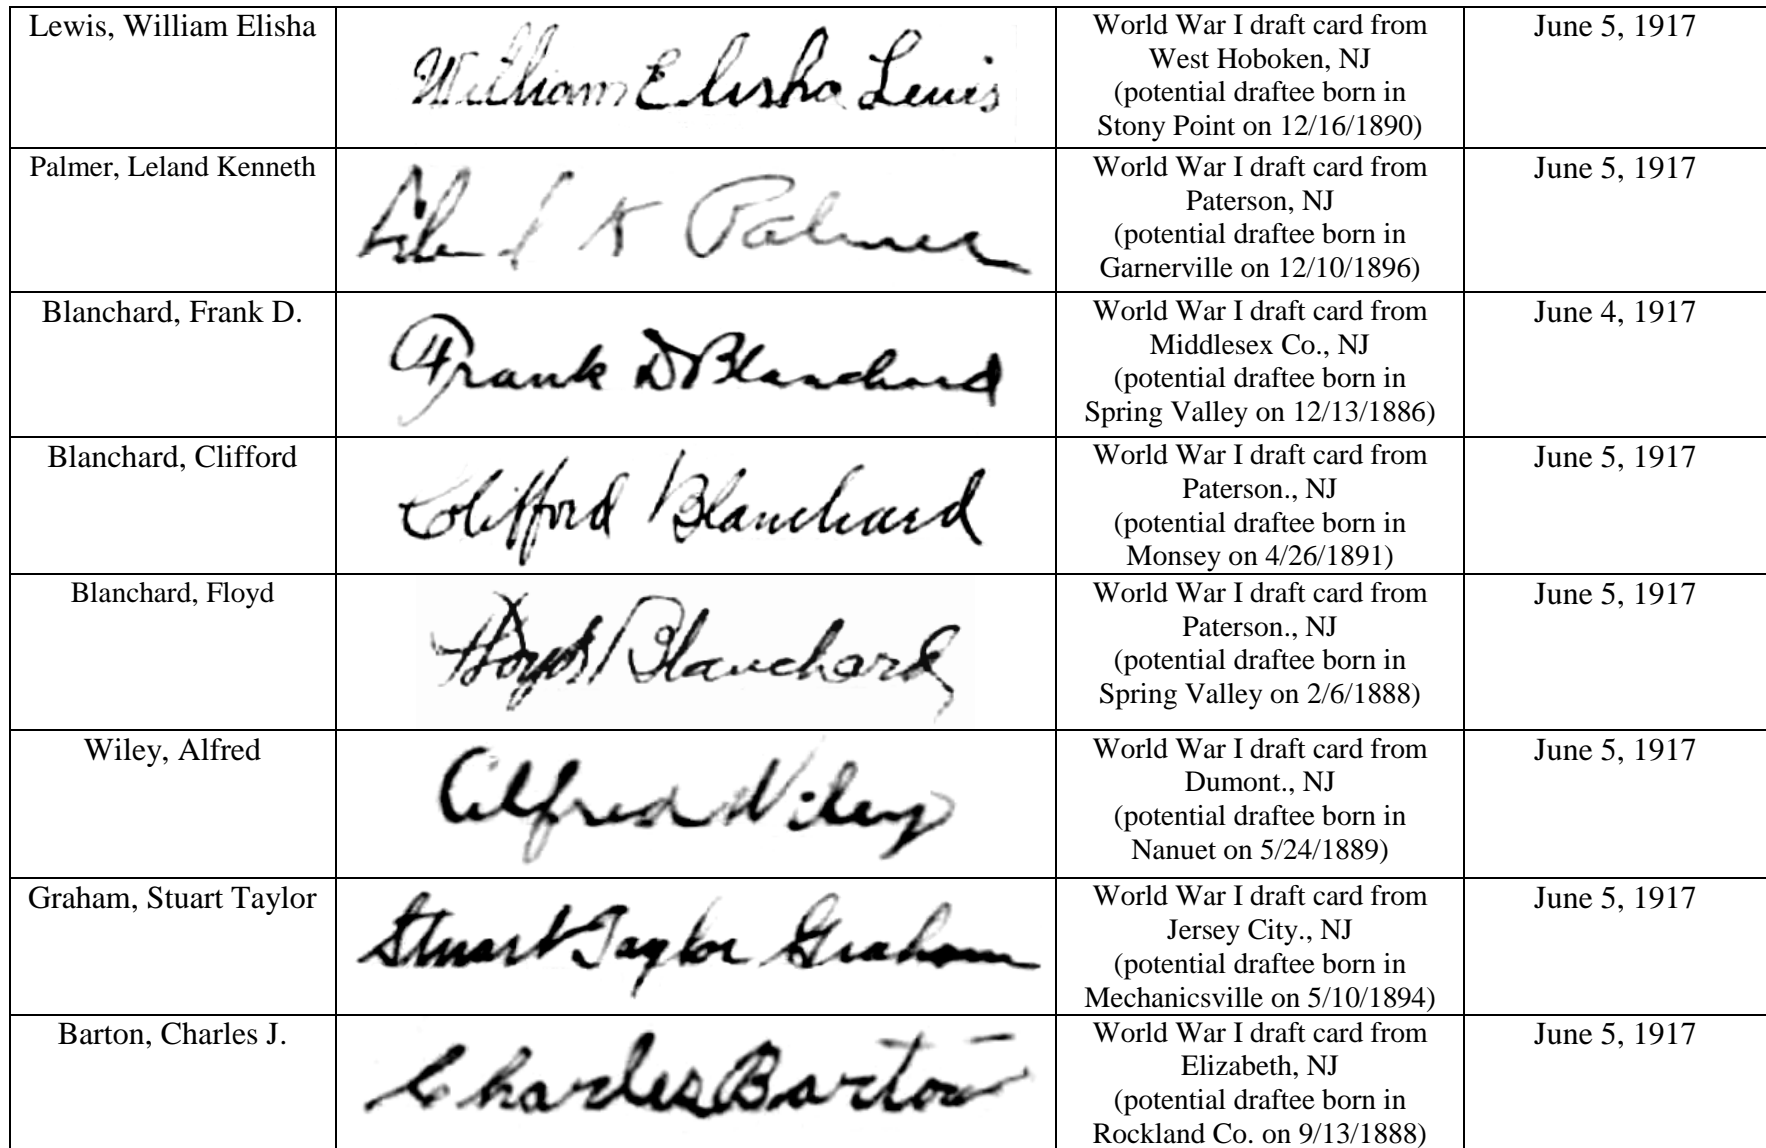 Lewis, William Elisha
William Elisha Lewis
World War I draft card from
West Hoboken, NJ
(potential draftee born in
Stony Point on 12/16/1890)
June 5, 1917
Palmer, Leland Kenneth
Leland K Palmer
World War I draft card from
Paterson, NJ
(potential draftee born in
Garnerville on 12/10/1896)
June 5, 1917
Blanchard, Frank D.
Frank D Blanchard
World War I draft card from
Middlesex Co., NJ
(potential draftee born in
Spring Valley on 12/13/1886)
June 4, 1917
Blanchard, Clifford
Clifford Blanchard
World War I draft card from
Paterson., NJ
(potential draftee born in
Monsey on 4/26/1891)
June 5, 1917
Blanchard, Floyd
Floyd Blanchard
World War I draft card from
Paterson., NJ
(potential draftee born in
Spring Valley on 2/6/1888)
June 5, 1917
Wiley, Alfred
Alfred Wiley
World War I draft card from
Dumont., NJ
(potential draftee born in
Nanuet on 5/24/1889)
June 5, 1917
Graham, Stuart Taylor
Stuart Taylor Graham
World War I draft card from
Jersey City., NJ
(potential draftee born in
Mechanicsville on 5/10/1894)
June 5, 1917
Barton, Charles J.
Charles Barton
World War I draft card from
Elizabeth, NJ
(potential draftee born in
Rockland Co. on 9/13/1888)
June 5, 1917